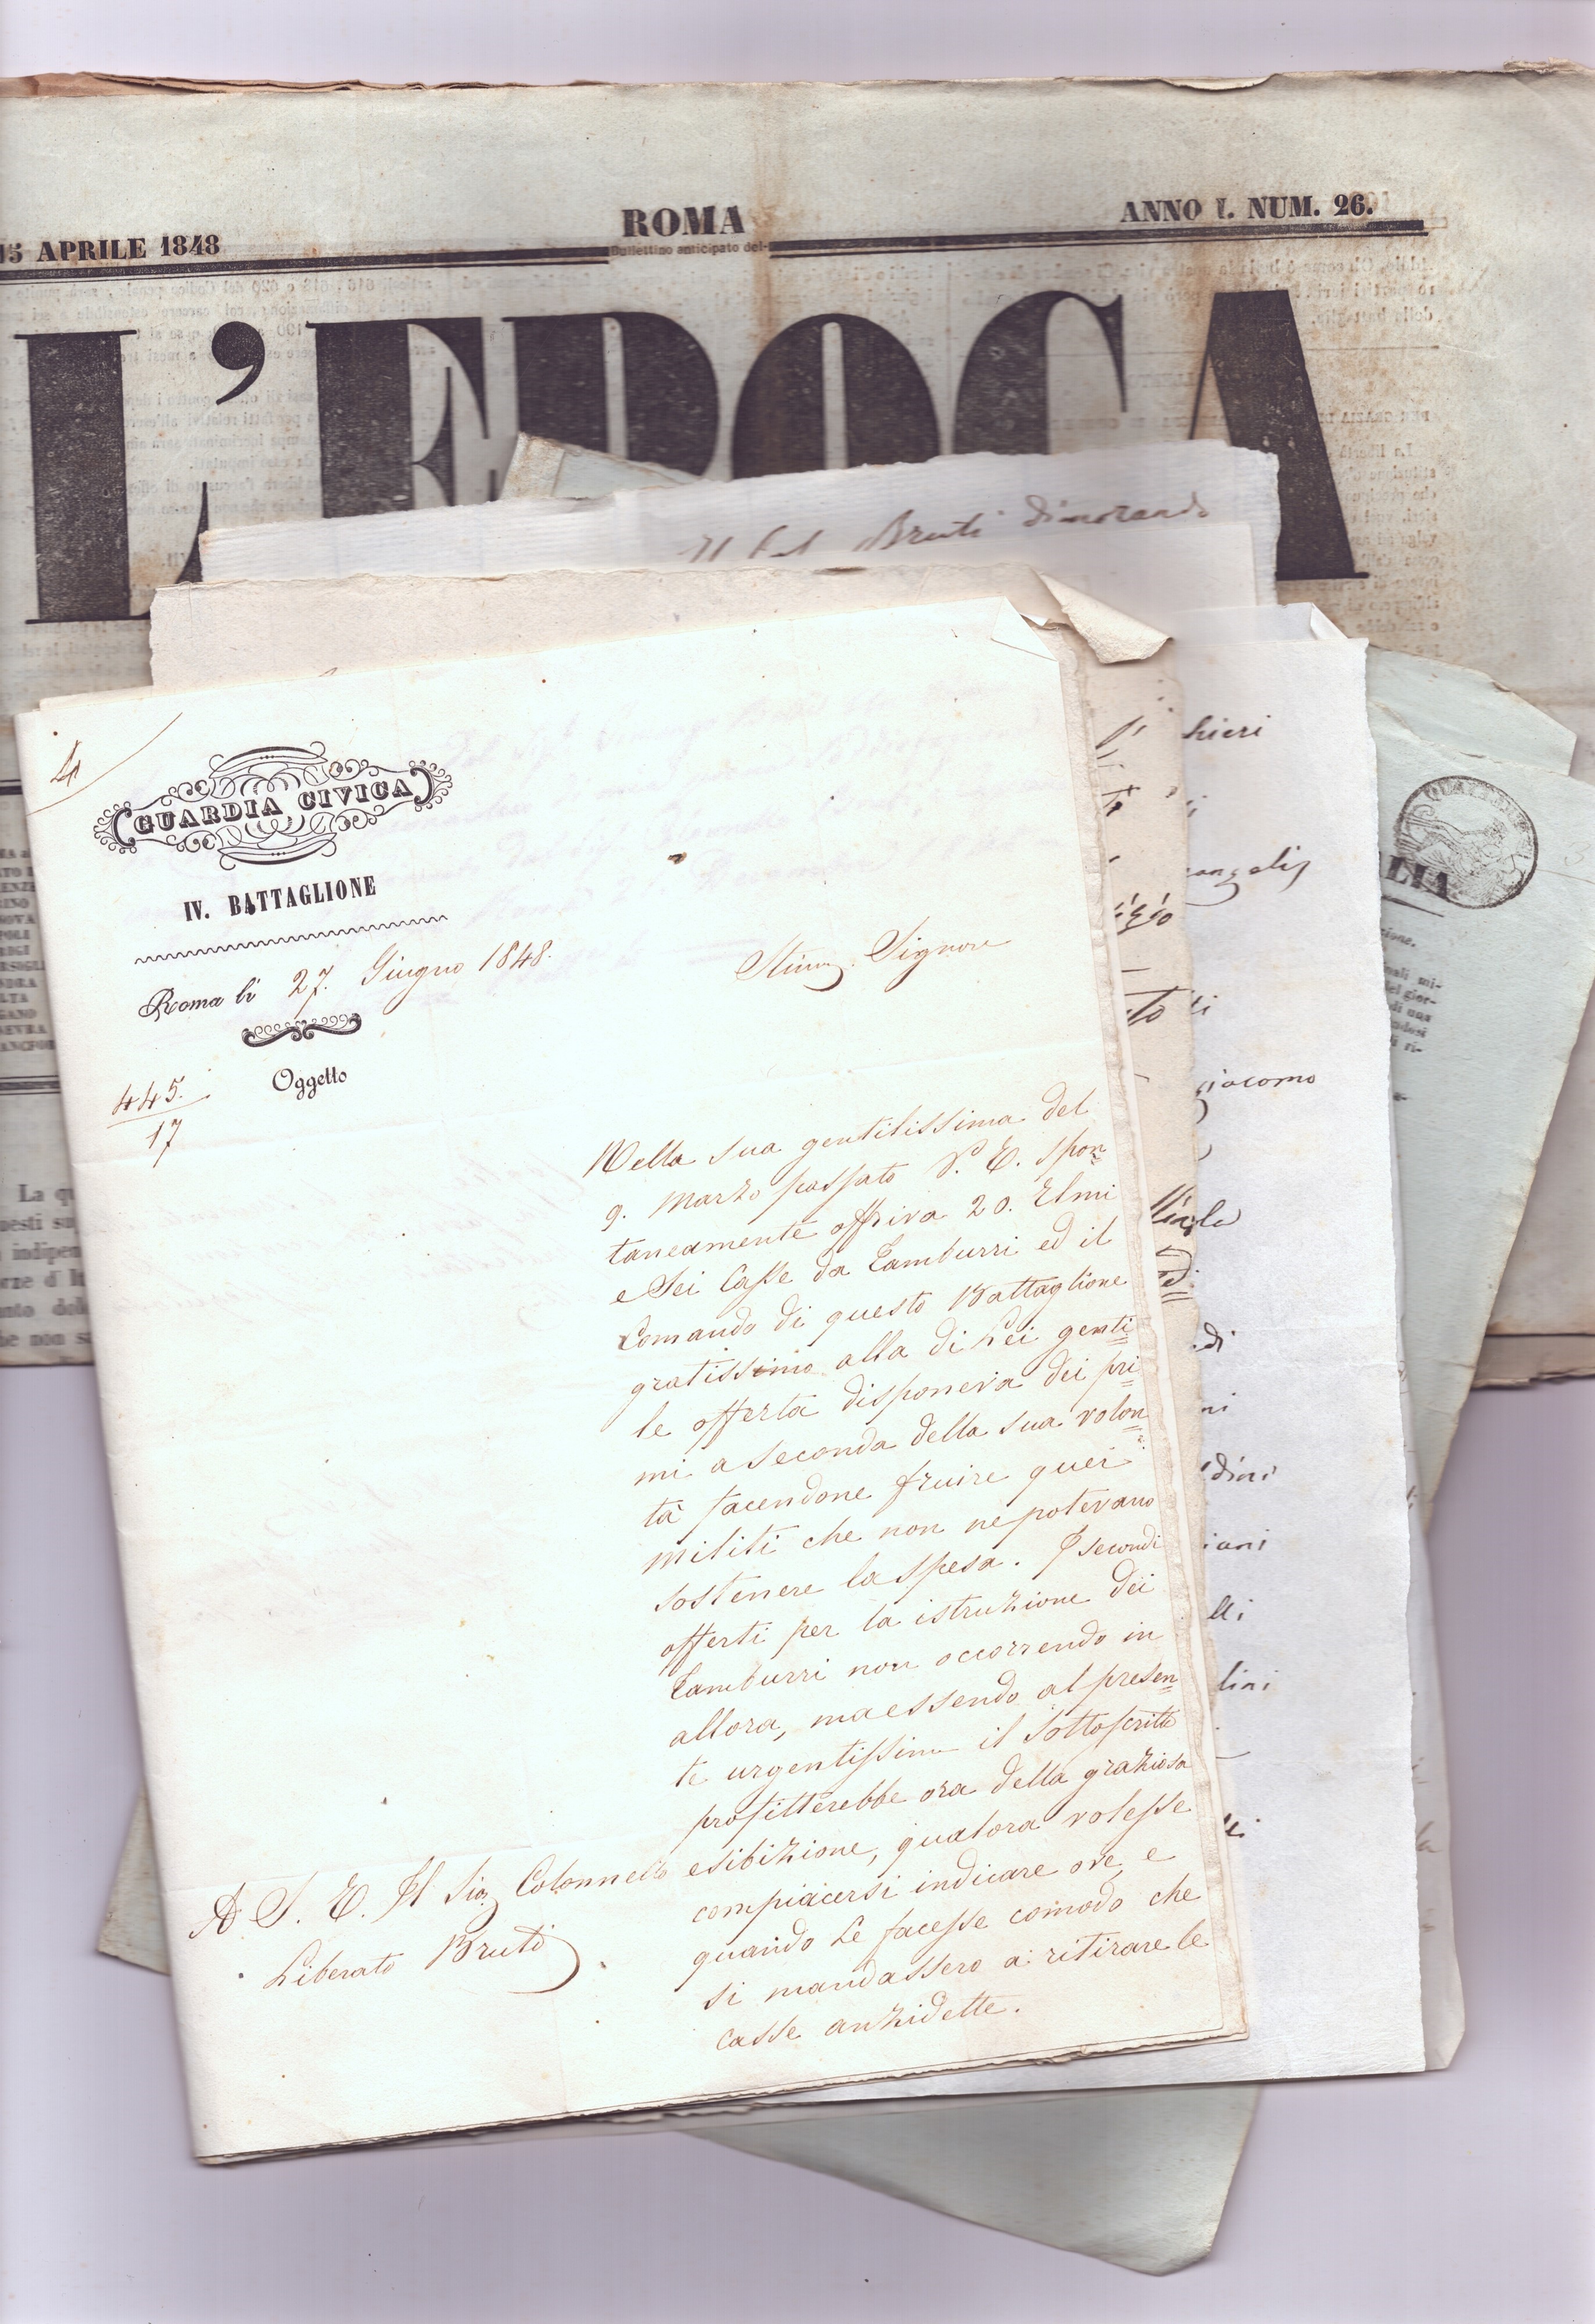 ROMA
ANNO I. NUM. 26.
15 APRILE 1848
Bullettino anticipato del
L'EPOCA
Bruti dimorando
4
GUARDIA CIVICA
IV. BATTAGLIONE
Roma li 27. Giugno 1848.
Oggetto
445.
17
Stimo. Signore
Nella sua gentilissima del
9. Marzo passato V. E. spon=
taneamente offriva 20. Elmi
e Sei Casse da Tamburri ed il
Comando di questo Battaglione
gratissimo alla di Lei genti=
le offerta disponeva dei pri=
mi a seconda della sua volon=
tà facendone fruire quei
militi che non ne potevano
sostenere la spesa. I secondi
offerti per la istruzione dei
Tamburri non occorrendo in
allora, ma essendo al presen=
te urgentissimo il sottoscritto
profitterebbe ora della graziosa
esibizione, qualora volesse
compiacersi indicare ove, e
quando Le facesse comodo che
si mandassero a ritirare le
casse anzidette.
A S. E. Il Sig. Colonnello
Liberato Bruti
hieri
angelis
giacomo
dini
iani
elli
lini
LIA
La qu
indipen
rze d' It
be non s